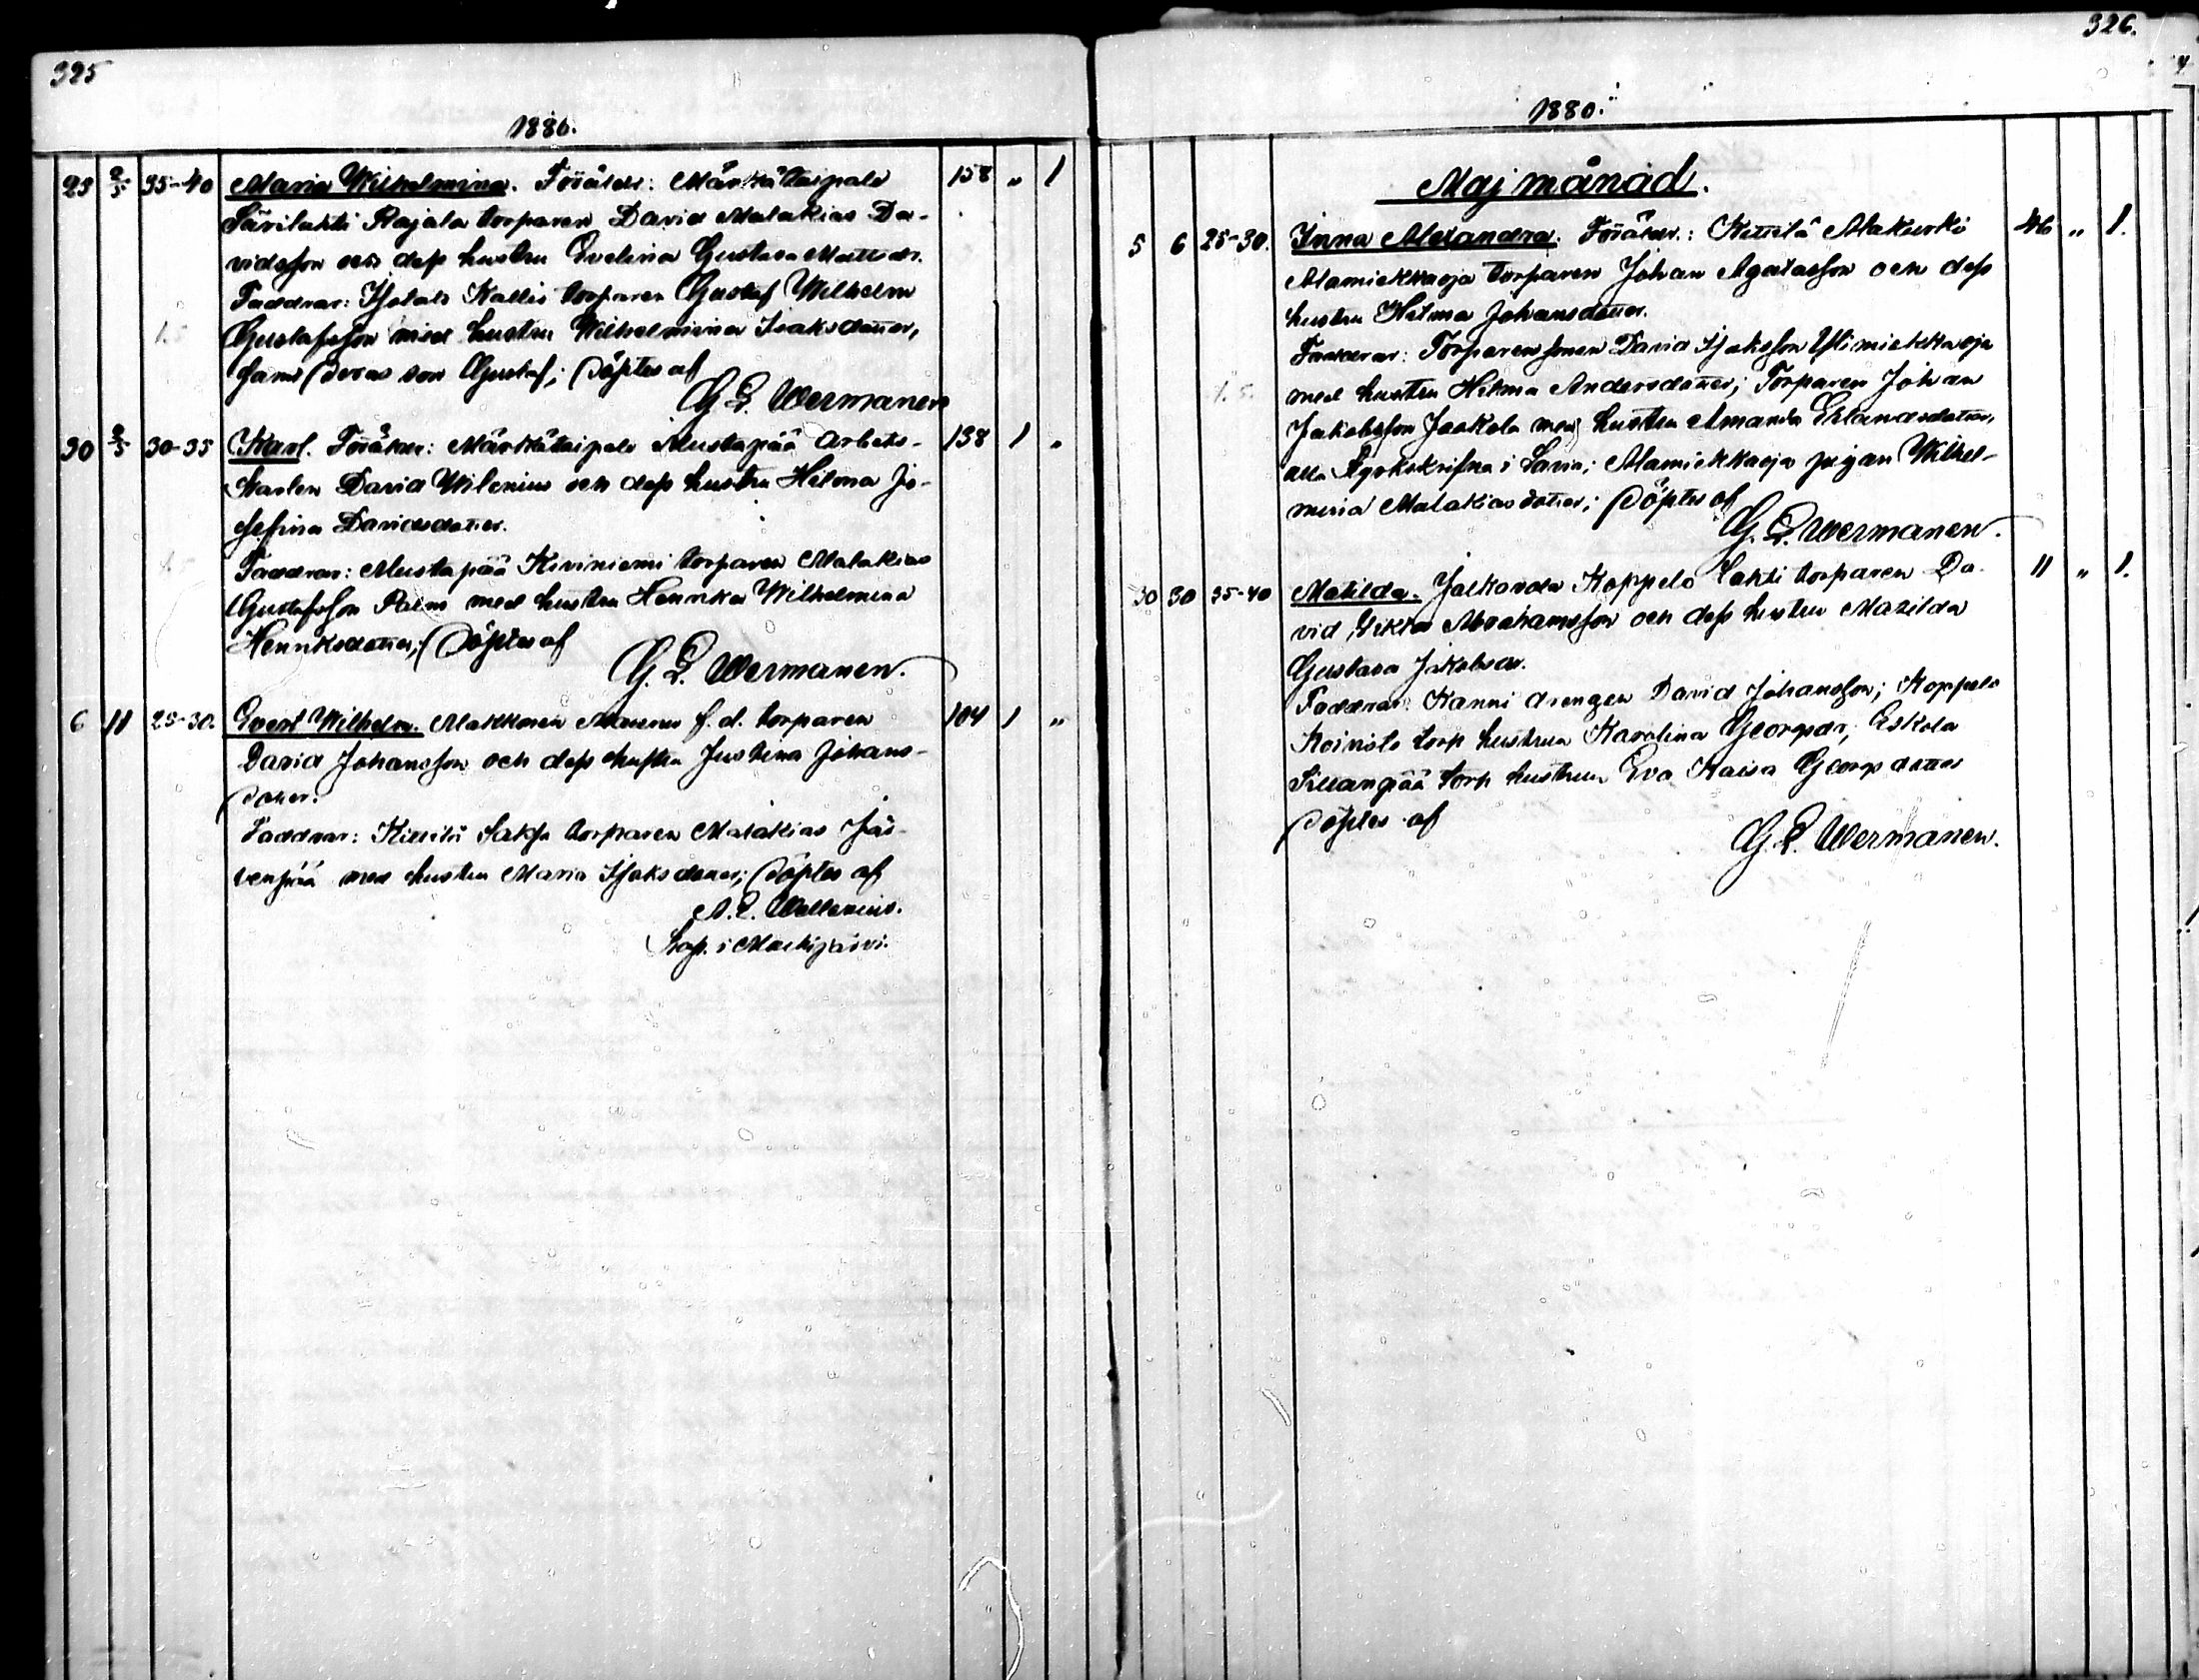 325
1886.
23 2/5 35-40 Maria Wilhelmina. Föräldr: Märkätaipale 158 „ 1
Särilahti Rajala torparen David Malakias Da-
vidsson och dess hustru Evelina Gustava Mattsdr.
Faddrar: Isotalo Kallio torparen Gustaf Wilhelm
Gustafsson med hustru Wilhelmina Isaksdotter,
samt deras son Gustaf; döptes af
G. L. Wermanen
30 2/5 30-35 Karl. Föräldr: Märkätaipale Mustapää arbets- 158 1 „
karlen David Wilenius och dess hustru Helena Jo-
sefina Davidsdotter.
Faddrar: Mustapää Kiviniemi torparen Malakias
Gustafsson Palm med hustru Henrika Wilhelmina
Henriksdotter; Döptes af
G. L. Wermanen.
6 11 25-30. Evert Wilhelm. Makkonen f. d. torparen 104 1 „
David Johansson och dess hustru Justina Johans-
doter.
Faddrar: Kittilä torparen Malakias Jär-
venpää med hustru Maria Isaksdotter; döptes af
A. L. Wallenius.
Kap. i
326.
1880.
Maj månad.
5 6 25-30. Inna Alexandra. Föräldr.: Kittilä Alakurki 46 „ 1.
Alamiekkaoja torparen Johan Agatasson och dess
hustru Hilma Johansdotter.
Faddrar: Torparensonen David Isaksson Ylimiekkaoja
med hustru Hilma Andersdotter; Torparen Johan
Jakobsson Jaakola med hustru Amanda Erlandsdotter,
alla i Lavia; Alamiekkaoja pigan Wilhel-
mina Malakiasdotter; Döptes af
G. L. Wermanen.
30 30 35-40 Matilda. Jalkonda Koppelo Lahti torparen Da- 11 „ 1.
vid Viktor Abrahamsson och dess hustru Matilda
Gustava Jakobsdr.
Faddrar: Hanni drengen David Johansson; Koppelo
Koivisto torp. hustrun Karolina Georgsdr; Eskola
Sillanpää torp. hustrun Eva Kaisa Georgsdotter
Döptes af
G. L. Wermanen.